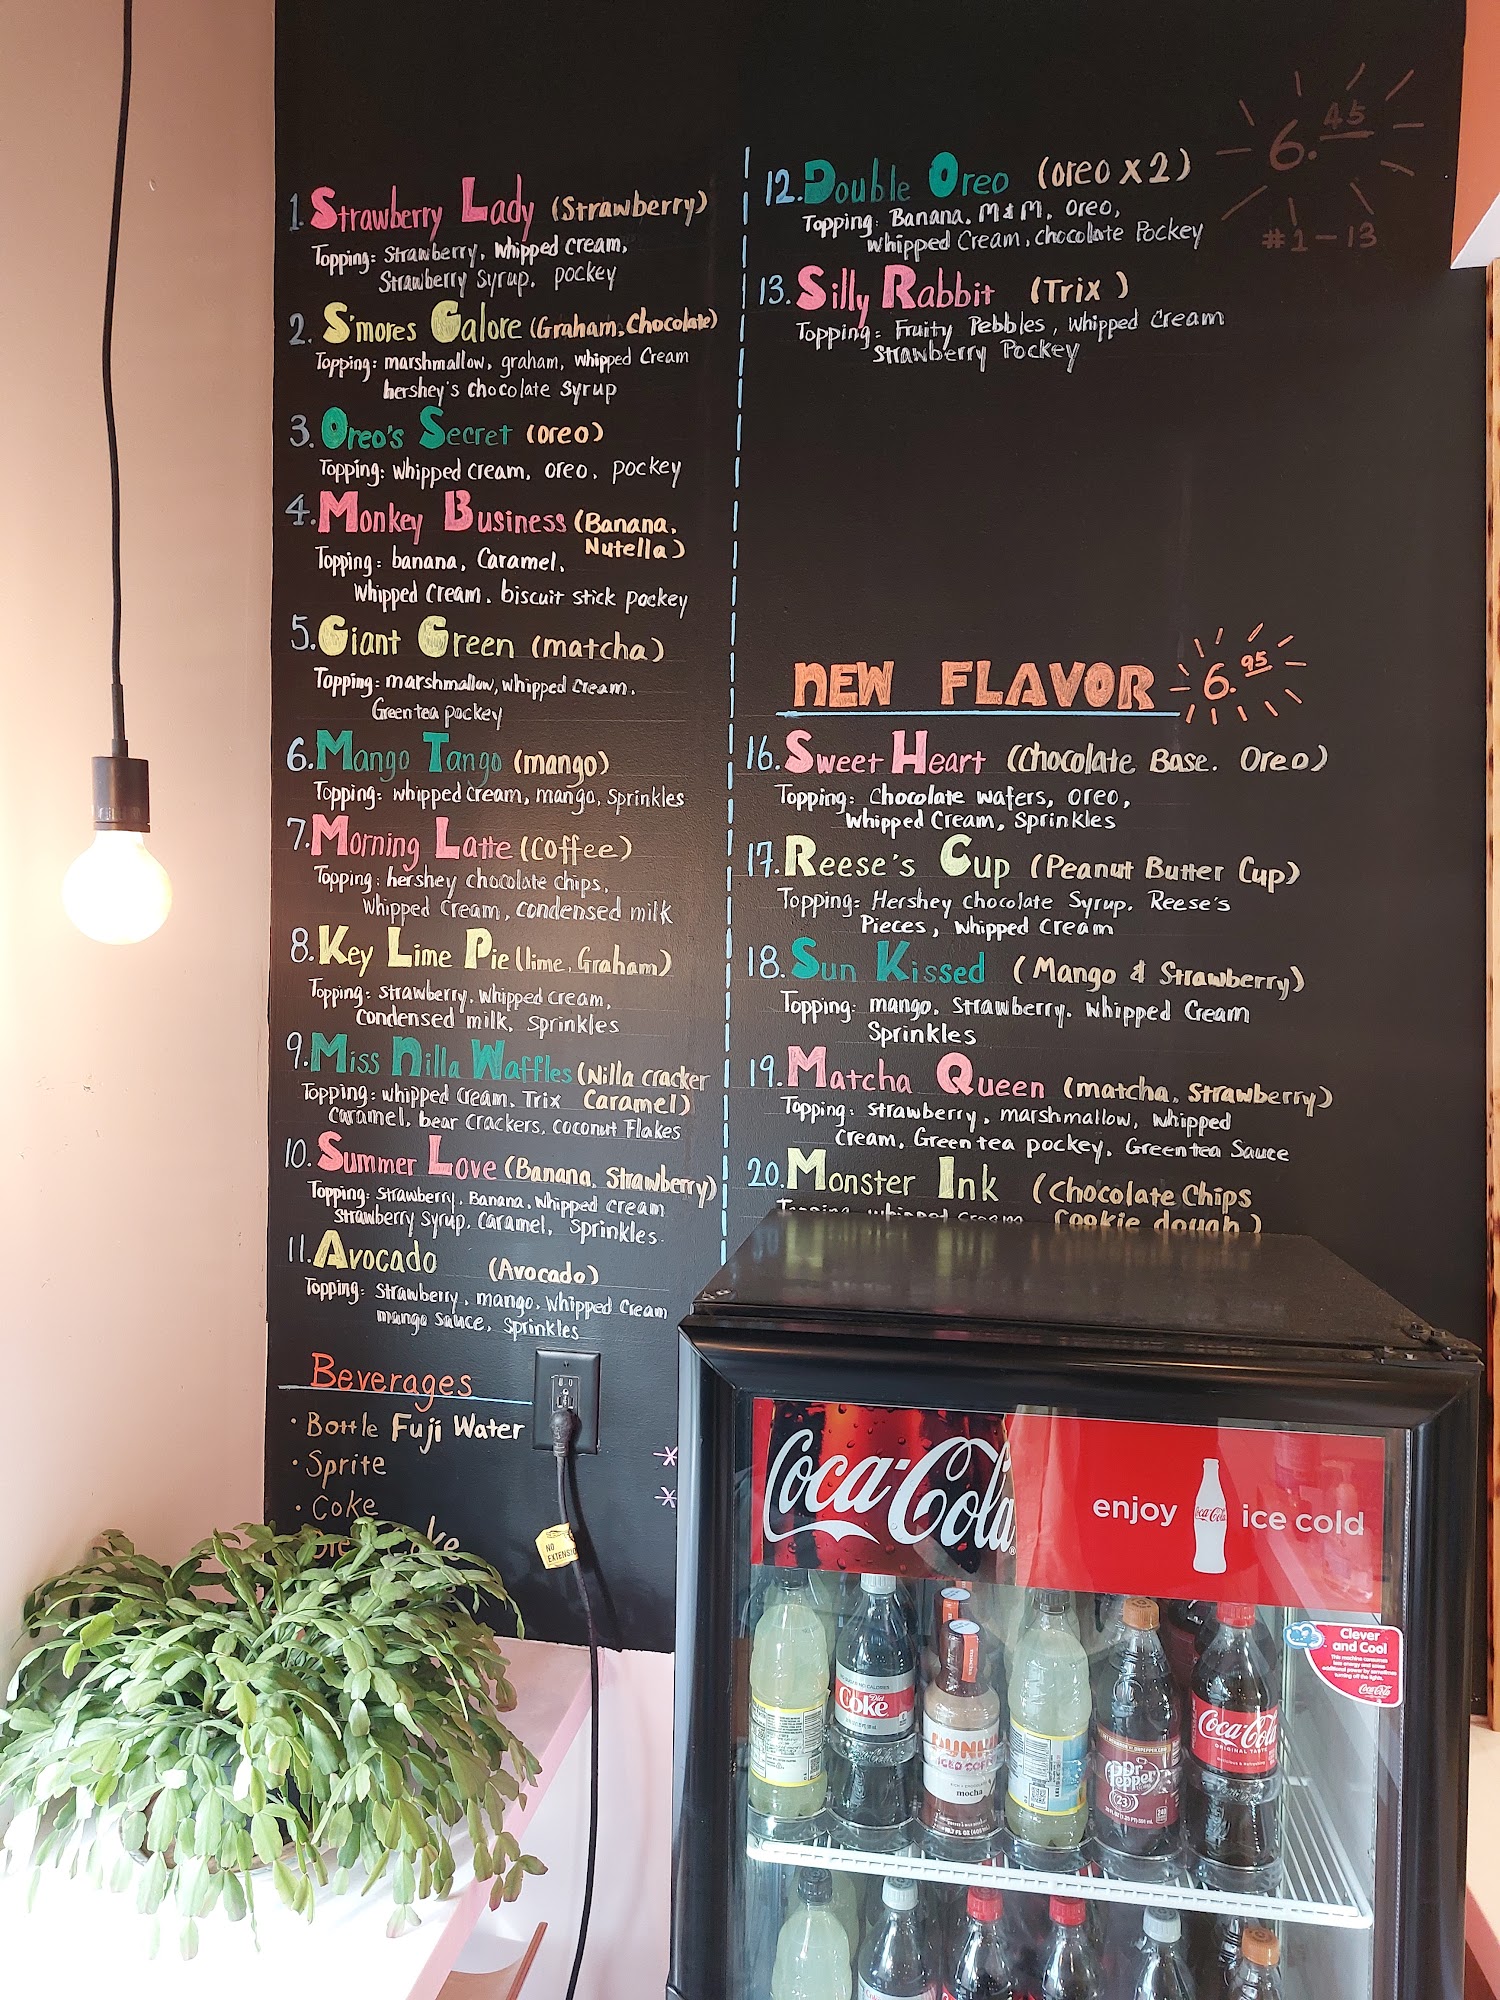 1. Strawberry Lady (Strawberry)
Topping: Strawberry, whipped cream,
Strawberry Syrup, pockey
2. S'mores Galore (Graham, Chocolate)
Topping: marshmallow, graham, whipped cream
hershey's chocolate syrup
3. Oreo's Secret (oreo)
Topping: whipped cream, oreo, pockey
4. Monkey Business (Banana,
Nutella)
Topping: banana, Caramel,
whipped cream, biscuit stick pockey
5. Giant Green (matcha)
Topping: marshmallow, whipped cream,
Green tea pockey
6. Mango Tango (mango)
Topping: whipped cream, mango, Sprinkles
7. Morning Latte (Coffee)
Topping: hershey chocolate chips,
whipped cream, condensed milk
8. Key Lime Pie (lime, Graham)
Topping: strawberry, whipped cream,
Condensed milk, Sprinkles
9. Miss Nilla Waffles (Nilla cracker
Caramel)
Topping: whipped cream, Trix
Caramel, bear crackers, coconut Flakes
10. Summer Love (Banana, Strawberry)
Topping: strawberry, Banana, whipped cream
Strawberry syrup, caramel, sprinkles.
11. Avocado (Avocado)
Topping: strawberry, mango, whipped cream
mango sauce, Sprinkles
Beverages
· Bottle Fuji Water
· Sprite
· Coke
12. Double Oreo (oreo x 2)
Topping: Banana, M & M, oreo,
whipped Cream, chocolate Pockey
6.45
#1-13
13. Silly Rabbit (Trix)
Topping: Fruity Pebbles, whipped cream
Strawberry Pockey
NEW FLAVOR 6.95
16. Sweet Heart (Chocolate Base, Oreo)
Topping: Chocolate wafers, oreo,
whipped Cream, Sprinkles
17. Reese's Cup (Peanut Butter Cup)
Topping: Hershey chocolate Syrup, Reese's
Pieces, whipped cream
18. Sun Kissed (Mango & Strawberry)
Topping: mango, strawberry, whipped Cream
Sprinkles
19. Matcha Queen (matcha, Strawberry)
Topping: strawberry, marshmallow, whipped
cream, Green tea pockey, Green tea Sauce
20. Monster Ink (Chocolate Chips
Cookie dough)
Topping: whipped cream
NO
EXTENSION
Coca-Cola
enjoy Coca-Cola ice cold
Clever
and Cool
Coca-Cola
Diet
Coke
ICED COFFEE
mocha
Dr Pepper
23
Coca-Cola
ORIGINAL TASTE